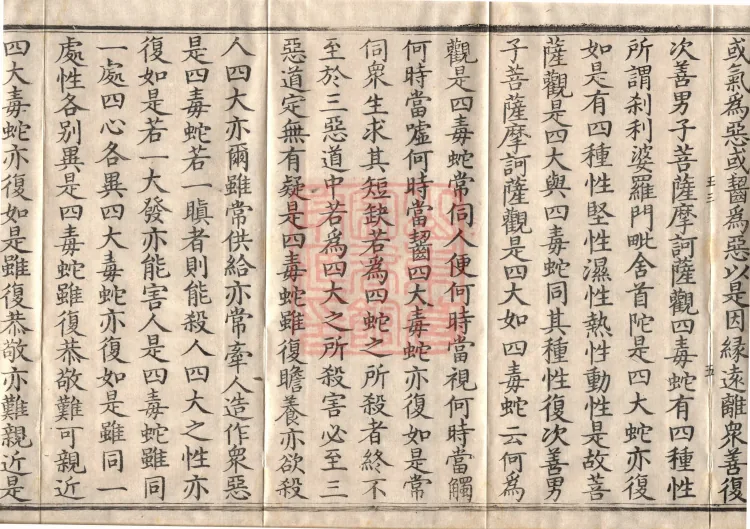 或氣為惡或齧為惡以是因縁遠離衆善復
次善男子菩薩摩訶薩觀四毒蛇有四種性
所謂剎利婆羅門毗舍首陀是四大蛇亦復
如是有四種性堅性濕性熱性動性是故菩
薩觀是四大與四毒蛇同其種性復次善男
子菩薩摩訶薩觀是四大如四毒蛇云何為
觀是四毒蛇常伺人便何時當視何時當觸
何時當噓何時當齧四大毒蛇亦復如是常
伺衆生求其短缺若為四蛇之所殺者終不
至於三惡道中若為四大之所殺害必至三
惡道定無有疑是四毒蛇雖復瞻養亦欲殺
人四大亦爾雖常供給亦常牽人造作衆惡
是四毒蛇若一瞋者則能殺人四大之性亦
復如是若一大發亦能害人是四毒蛇雖同
一處四心各異四大毒蛇亦復如是雖同一
處性各別異是四毒蛇雖復恭敬難可親近
四大毒蛇亦復如是雖復恭敬亦難親近是